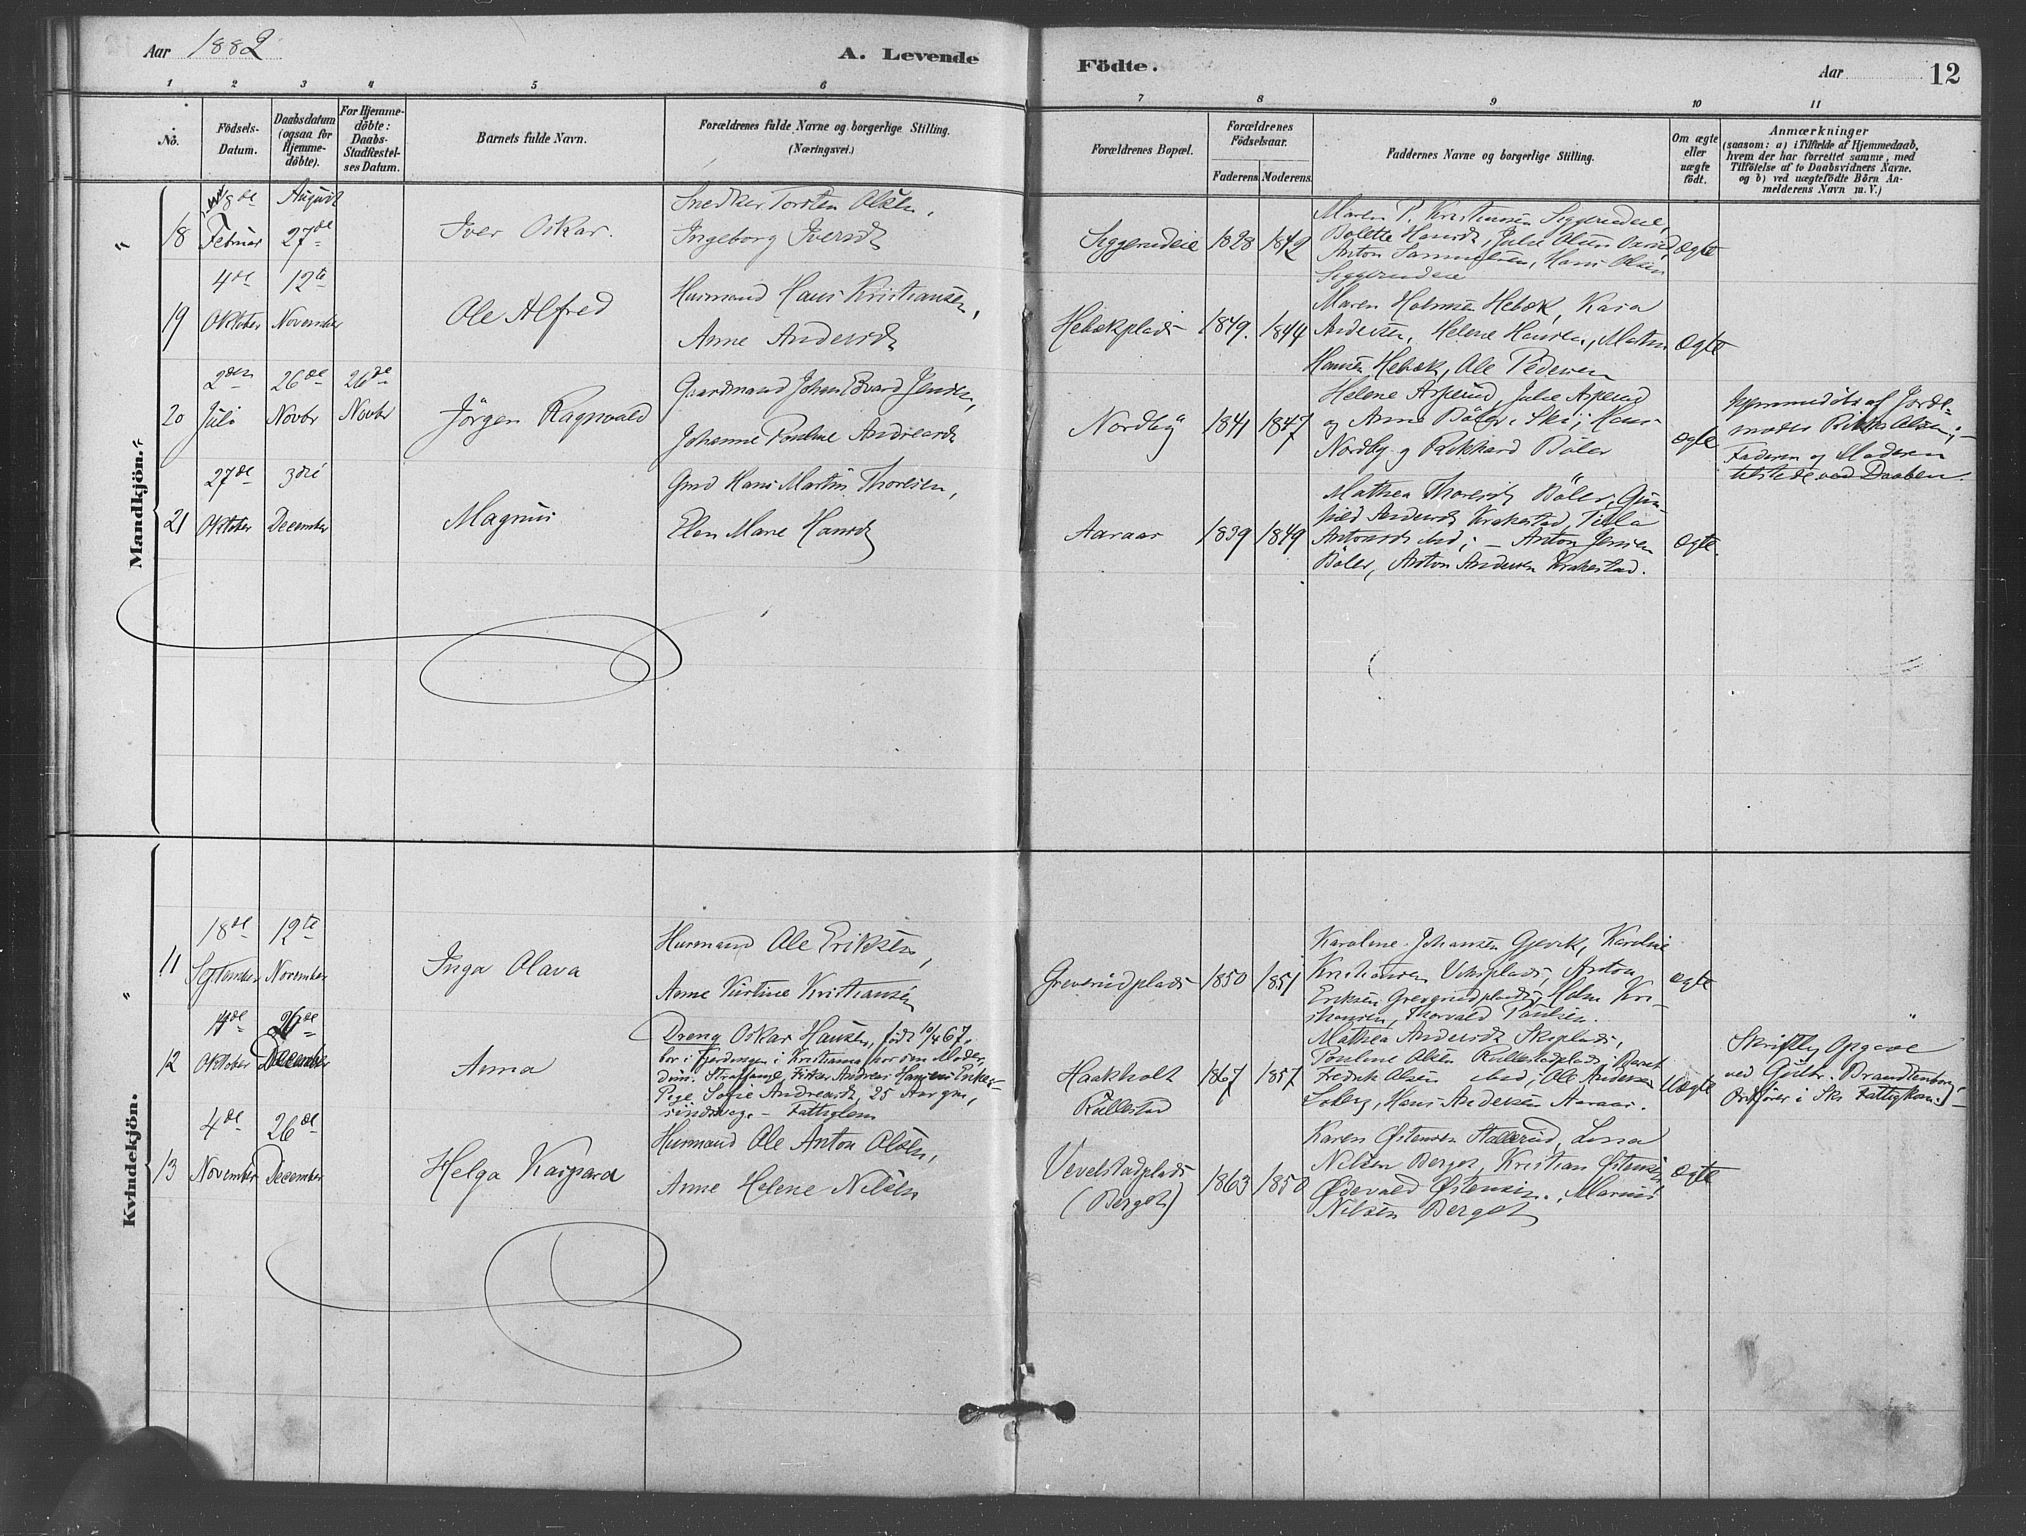 Aar 1882
A. Levende
Födte.
Aar
12
1 2 3 4 5 6 7 8 9 10 11
No.
Födsels-
Datum.
Daabsdatum
(ogsaa for
Hjemme-
döbte).
For Hjemme-
döbte:
Daabs-
Stadfæstel-
ses Datum.
Barnets fulde Navn.
Forældrenes fulde Navne og borgerlige Stilling.
(Næringsvei.)
Forældrenes Bopæl.
Forældrenes
Födselsaar.
Faderens. Moderens.
Faddernes Navne og borgerlige Stilling.
Om ægte
eller
uægte
født.
Anmærkninger
(saasom: a) i Tilfælde af Hjemmedaab,
hvem der har forrettet samme, med
Tilföielse af to Daabsvidners Navne.
og b) ved uægtefödte Börn An-
melderens Navn m. V.)
"
Mandkjön."
18
Februar
August
27de
Iver Oskar.
Snedker Torsten Olsen,
Ingeborg Iversdt
Siggerudeie
1828 1842
Maren P. Kristiansen Siggerudeie,
Bolette Hansdt, Julie Olsen
Anton Sammelsen, Hans Olsen
Siggerudeie
Ægte
19
4de
Oktober
12te
November
Ole Alfred
Husmand Hans Kristiansen,
Anne Andersdt
Hebækplads
1849. 1844
Maren Holmsen Hebæk, Kara
Andersen, Helene Hansen, Martin
Hansen Hebæk, Ole Pedersen
Ægte
20
2den
Juli
26de
Novbr
26de
Novbr
Jörgen Ragnvald
Gaardmand Johan Edvard Jensen,
Johanne Pauline Andreasdt
Nordby
1841 1847
Helene Asperud, Julie Asperud
og Anne Böler, Ski; Hans
Nordby og Rikhard Böler
Ægte
Hjemmedöbt af Jorde-
moder Olsen;
Faderen og Moderen
tilstede ved Daaben.
21
27de
Oktober
3die
December
Magnus
Gmd Hans Martin Thoresen,
Elen Marie Hansdt
Aaraas
1839 1849
Mathea Thoresdt Böler, Gun-
hild Andersdt Krakestad,
Antonsdt ibid; – Anton Jensen
Böler, Anton Andersen Krakestad.
Ægte.
"
Kvindekjön.
11
18de
September
12te
November
Inga Olava
Husmand Ole Eriksen,
Anne Kirstine Kristiansen
Greverudplads
1850 1851
Karoline Johansen Gjevik, Karoline
Kristiansen Anton
Eriksen Greverudplads, Holm Kri-
stiansen, Thorvald Paulsen.
Ægte
12
Oktober
26de
December
Anna
Dreng Oskar Hansen, född 10/4 67.
bor i Fjerdingen i Kristiania hos sin Moder,
Andreas Hansens Enke –
Pige Sofie Andreasdt, 25 Aar gm,
sindssvag – Fattiglem
Haakholt
Rullestad
1867 1857
Mathea Andersdt Skiplads,
Pauline Olsen Rullestadplads,
Fredrik Olsen ibid; Ole Andersen
Hans Andersen Aaraas.
Uægte
Skriftlig Opgave
ved Gulbr. Brandtenborg,
Ordförer i Ski Fattigkom.
13
4de
November
26de
December
Helga Kaspara
Husmand Ole Anton Olsen,
Anne Helene Nilsen
Vevelstadplads
(Berget)
1863 1850
Karen Østensen Stallerud, Lina
Nilsen Berget, Kristian Østensen,
Østensen. Marius
Nilsen Berget
Ægte